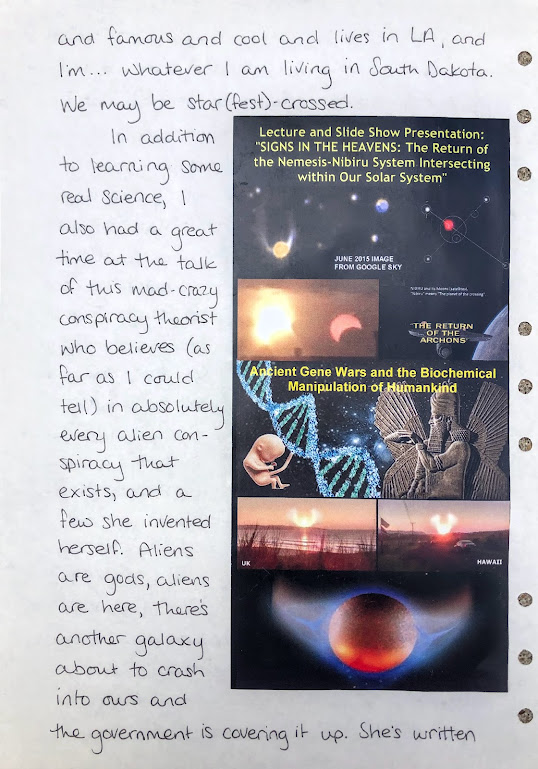 and famous and cool and lives in LA, and
I'm... whatever I am living in South Dakota.
We may be star(fest)-crossed.
In addition
to learning some
real science, I
also had a great
time at the talk
of this mad-crazy
conspiracy theorist
who believes (as
far as I could
tell) in absolutely
every alien con-
spiracy that
exists, and a
few she invented
herself. Aliens
are gods, aliens
are here, there's
another galaxy
about to crash
into ours and
the government is covering it up. She's written
Lecture and Slide Show Presentation:
"SIGNS IN THE HEAVENS: The Return of
the Nemesis-Nibiru System Intersecting
within Our Solar System"
JUNE 2015 IMAGE
FROM GOOGLE SKY
"Nibiru" means "The planet of the crossing"
THE RETURN
OF THE
ARCHONS
Ancient Gene Wars and the Biochemical
Manipulation of Humankind
UK
HAWAII